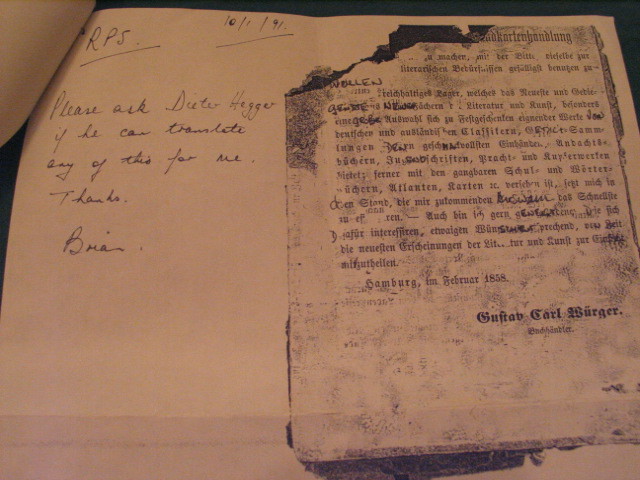 RPS.
10/1/91.
Please ask Dieter Hegger
if he can translate
any of this for me.
Thanks.
Brian.
dkartenhandlung
zu machen, mit der Bitte, dieselbe zur
literarischen Bedürfnissen gefälligst benutzen zu
WOLLEN
reichhaltiges Lager, welches das Neueste und Gedie-
büchern d. Literatur und Kunst, besonders
eine Auswahl sich zu Festgeschenken eignender Werke von
deutschen und ausländischen Classikern, Sam-
lungen geschmackvollsten Einbänden, Andachts-
büchern, Jugendschriften, Pracht- und Kupferwerken
bietet, ferner mit den gangbaren Schul- und Wörter-
büchern, Atlanten, Karten ꝛc. versehen ist, setzt mich in
den Stand, die mir zukommenden das Schnellste
zu eff ren. — Auch bin ich gern Die sich
dafür interessiren, etwaigen Wün sprechend, von Zeit
die neuesten Erscheinungen der Lit tur und Kunst zur
mitzutheilen.
Hamburg, im Februar 1858.
Gustav Carl Würger.
Buchhändler.